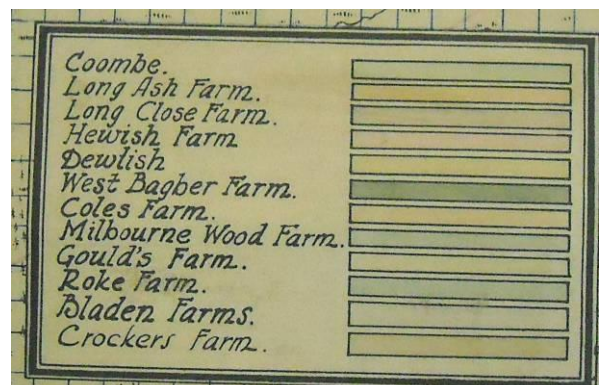 Coombe.
Long Ash Farm.
Long Close Farm.
Hewish Farm
Dewlish
West Bagber Farm.
Coles Farm.
Milbourne Wood Farm.
Gould's Farm.
Roke Farm.
Bladen Farms.
Crockers Farm.